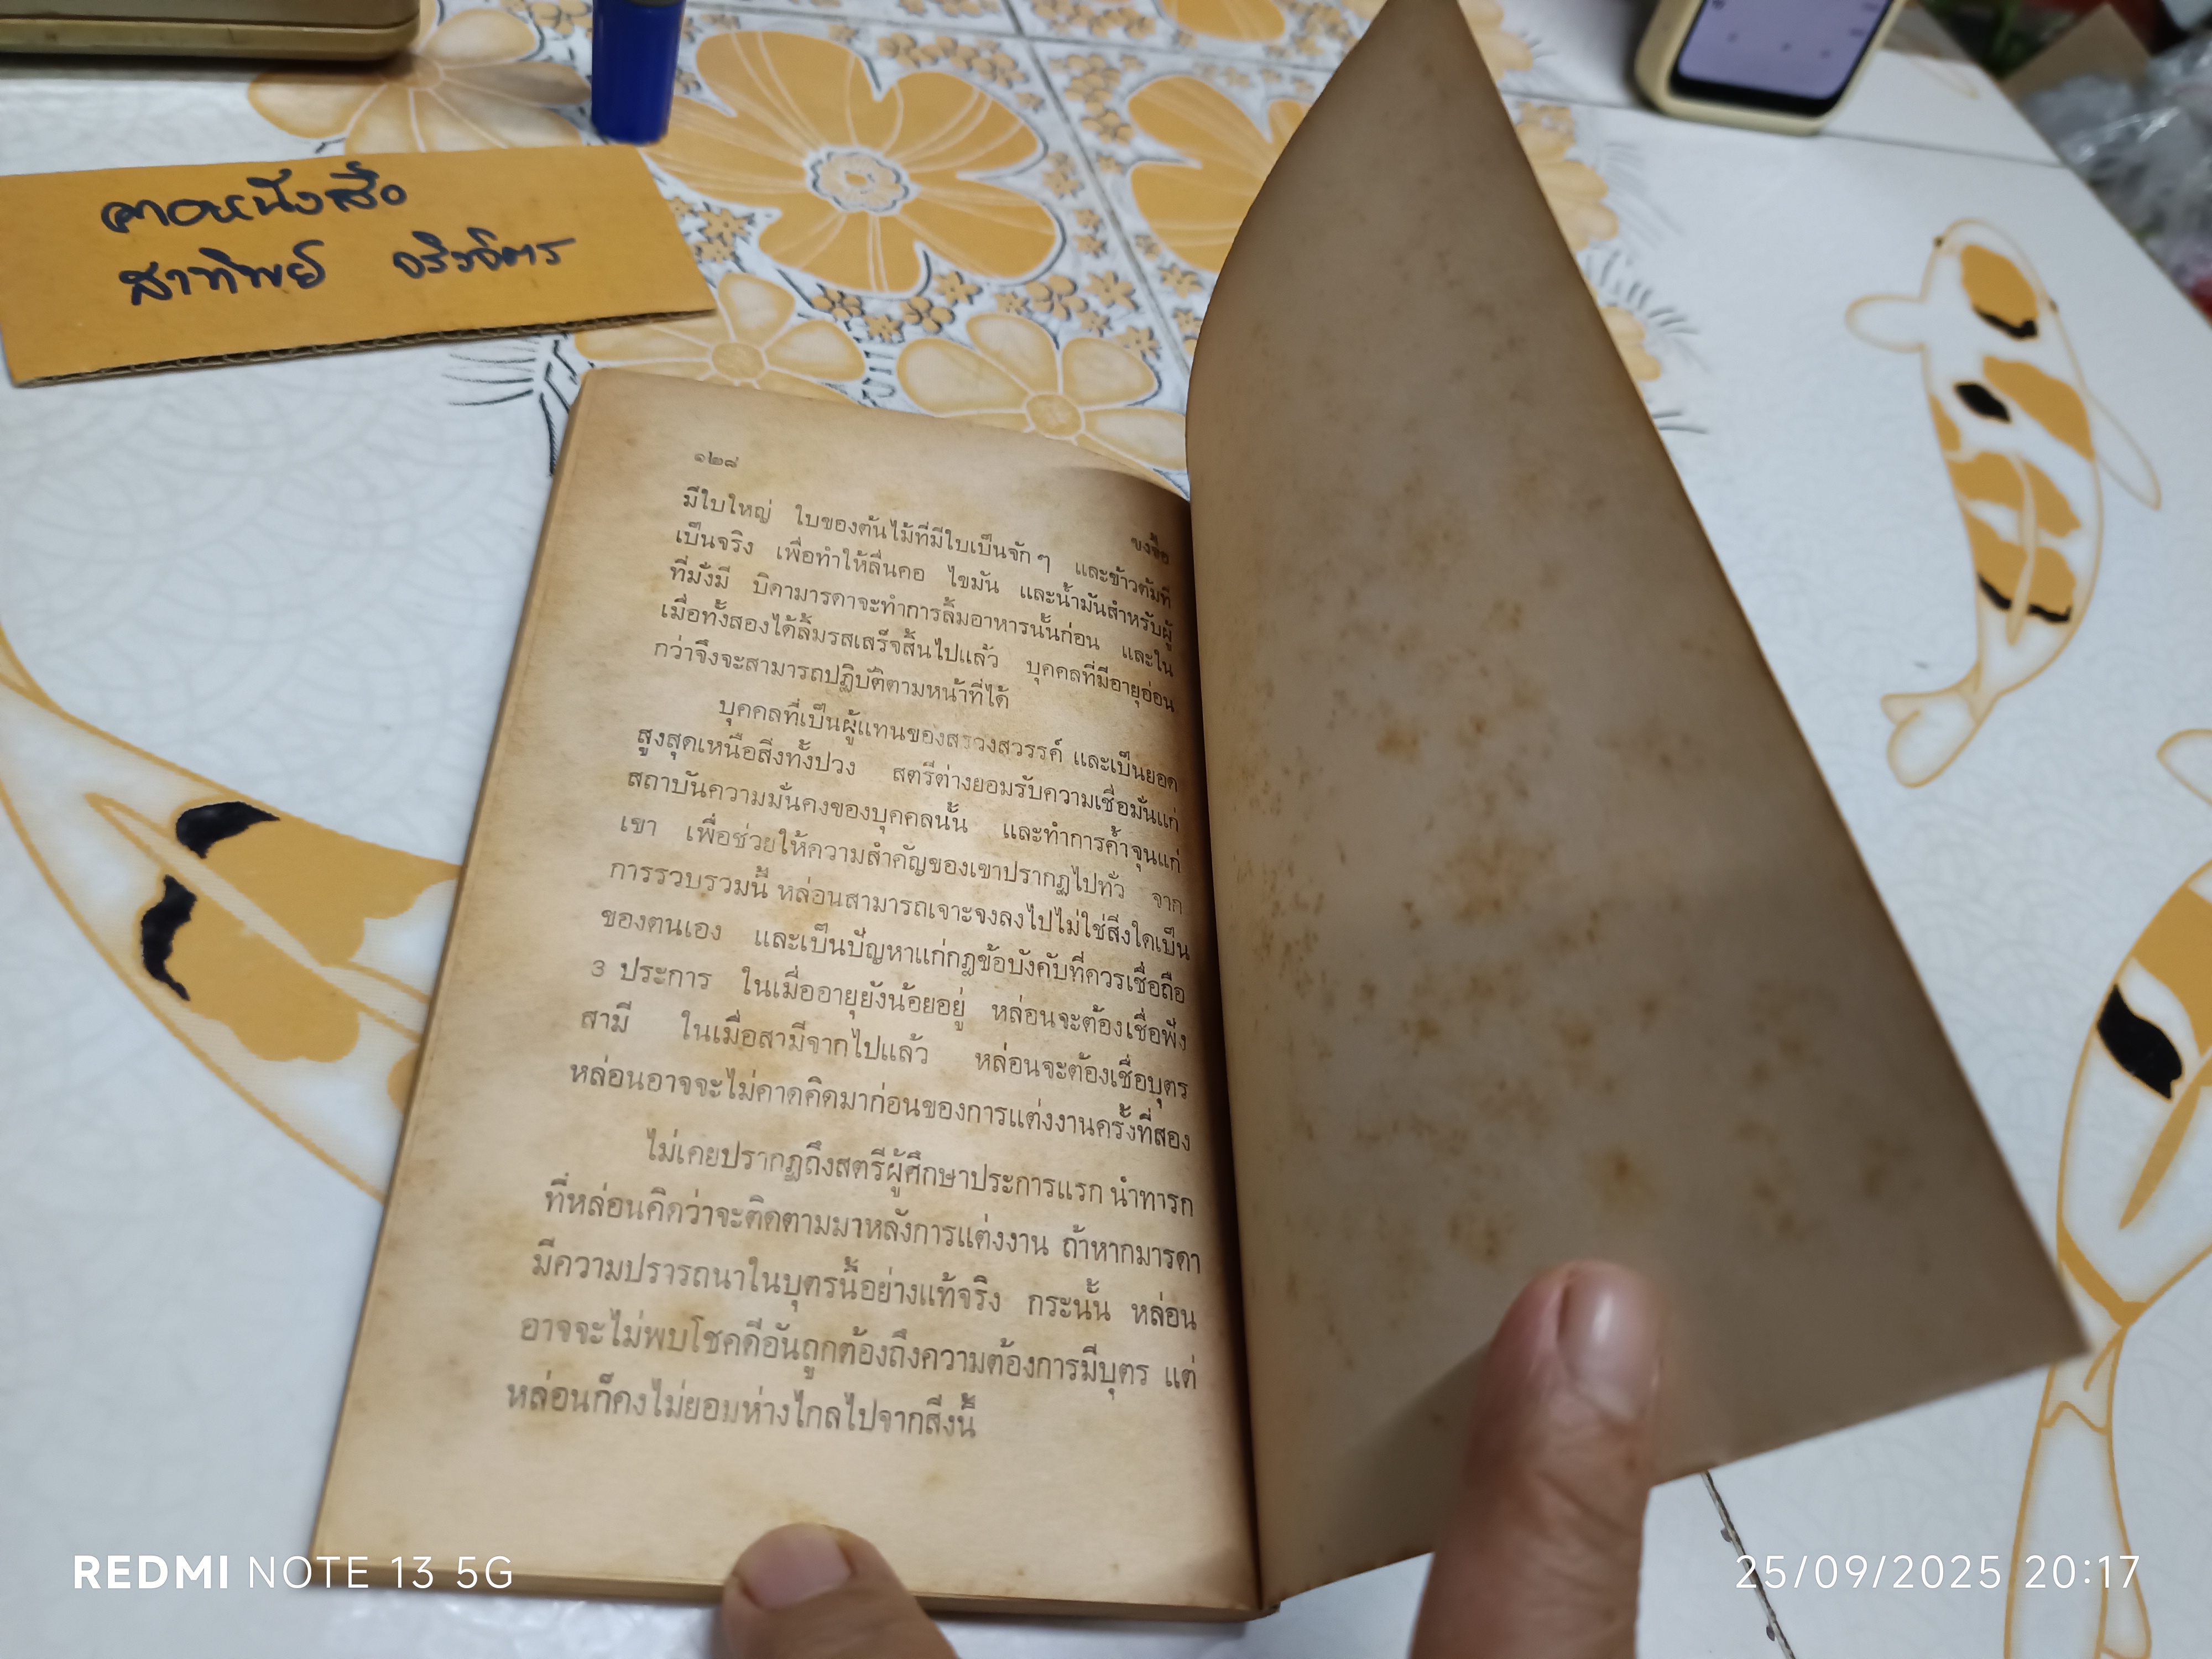 ตาอหนังสือ
สาทิพย์ จริงจิตร
๑๒๘
ขงจื๊อ
มีใบใหญ่ ใบของต้นไม้ที่มีใบเป็นจัก ๆ และข้าวต้มที่
เป็นจริง เพื่อทำให้ลื่นคอ ไขมัน และน้ำมันสำหรับผู้
ที่มั่งมี บิดามารดาจะทำการลิ้มอาหารนั้นก่อน และใน
เมื่อทั้งสองได้ลิ้มรสเสร็จสิ้นไปแล้ว บุคคลที่มีอายุอ่อน
กว่าจึงจะสามารถปฏิบัติตามหน้าที่ได้
บุคคลที่เป็นผู้แทนของสรวงสวรรค์ และเป็นยอด
สูงสุดเหนือสิ่งทั้งปวง สตรีต่างยอมรับความเชื่อมั่นแก่
สถาบันความมั่นคงของบุคคลนั้น และทำการค้ำจุนแก่
เขา เพื่อช่วยให้ความสำคัญของเขาปรากฏไปทั่ว จาก
การรวบรวมนี้ หล่อนสามารถเจาะจงลงไปไม่ใช่สิ่งใดเป็น
ของตนเอง และเป็นปัญหาแก่กฎข้อบังคับที่ควรเชื่อถือ
3 ประการ ในเมื่ออายุยังน้อยอยู่ หล่อนจะต้องเชื่อฟัง
สามี ในเมื่อสามีจากไปแล้ว หล่อนจะต้องเชื่อบุตร
หล่อนอาจจะไม่คาดคิดมาก่อนของการแต่งงานครั้งที่สอง
ไม่เคยปรากฏถึงสตรีผู้ศึกษาประการแรก นำทารก
ที่หล่อนคิดว่าจะติดตามมาหลังการแต่งงาน ถ้าหากมารดา
มีความปรารถนาในบุตรนี้อย่างแท้จริง กระนั้น หล่อน
อาจจะไม่พบโชคดีอันถูกต้องถึงความต้องการมีบุตร แต่
หล่อนก็คงไม่ยอมห่างไกลไปจากสิ่งนี้
REDMI NOTE 13 5G
25/09/2025 20:17